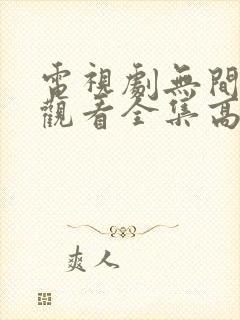 電視劇無間
觀看全集高
爽人